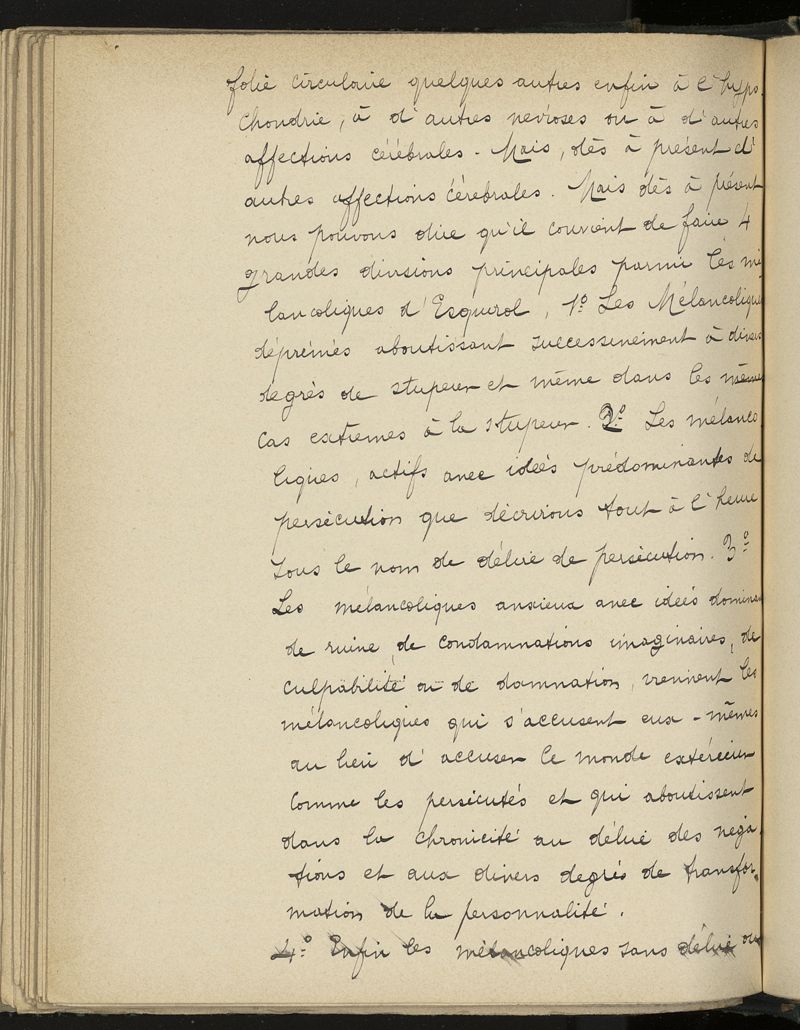 folie circulaire quelques autres enfin à l'hypo-
chondrie, à d'autres nevroses ou à d'autres
affections cérébrales. Mais, dès à présent d'
autres affections cérebrales. Mais dès à présent
nous pouvons dire qu'il convient de faire 4
grandes divisions principales parmi les mé
lancoliques d'Esquirol, 1º Les Mélancoliques
déprémés aboutissant successivement à divers
degrés de stupeur et même dans les mêmes
cas extrêmes à la stupeur. 2º Les mélanco
liques, actifs avec idées prédominantes de
persécution que décrirons tout à l'heure
sous le nom de délire de persécution. 3º
Les mélancoliques anxieux avec idées dominan
de ruine, de condamnations imaginaires, de
culpabilité ou de damnation, viennent les
mélancoliques qui s'accusent eux-mêmes
au lieu d'accuser le monde extérieur
comme les persécutés et qui aboutissent
dans la chronicité au délire des néga-
tions et aux divers degrés de transfor-
mation de la personnalité.
4º Enfin les mélancoliques sans délire ou